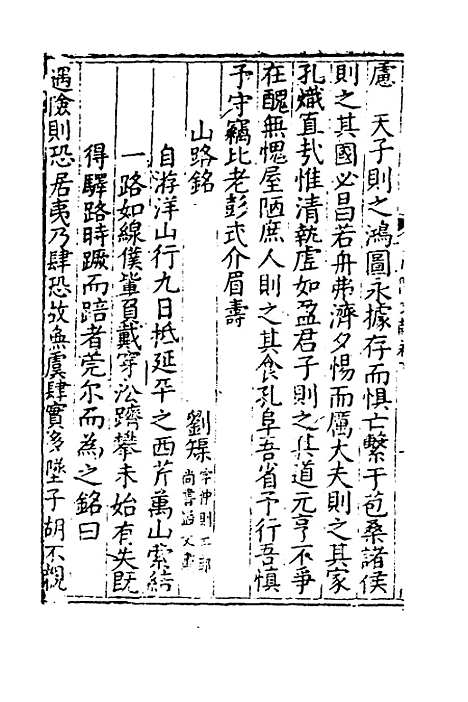 慮　天子則之鴻圖永據存而惧亡繫于苞桑諸侯
則之其國必昌若舟弗濟夕惕而厲大夫則之其家
孔熾直㢤惟清執虛如盈君子則之其道元亨不爭
在醜無愧屋陋庶人則之其食孔阜吾省予行吾慎
予守竊比老彭式介眉壽
山路銘　劉㮚字仲則工部尚書謚文
自游洋山行九日抵延平之西芹萬山縈結
一路如線僕軰負戴穿㳂躋攀未始有失既
得驛路時蹶而踣者莞尔而為之銘曰
遇險則恐居夷乃肆恐故無虞肆實多墜子胡不觀